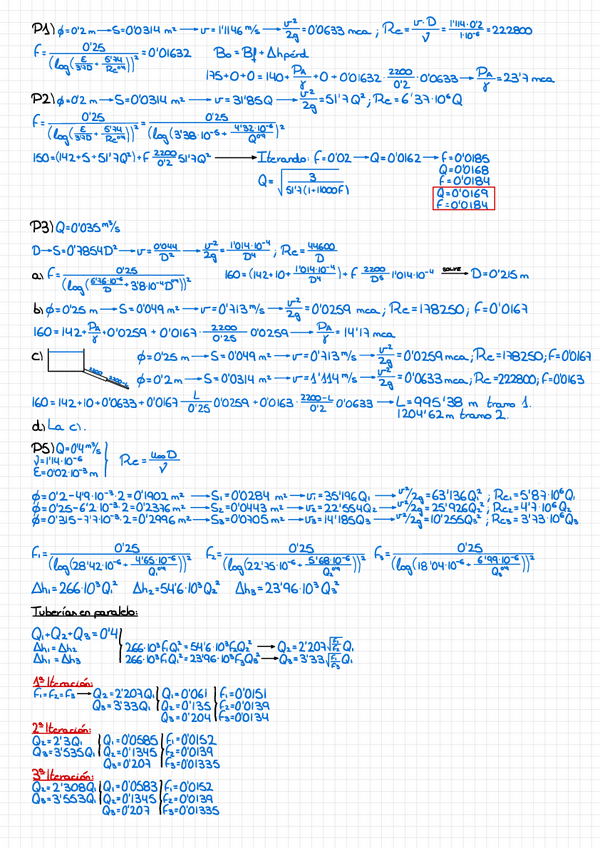 P1) φ=0'2 m → S=0'0314 m² → v=1'1146 m/s → v²/2g = 0'0633 mca ; Re = v·D/ν = 1'114·0'2/1·10⁻⁶ = 222800
f = 0'25/(log(ε/3'7D + 5'74/Re⁰'⁹))² = 0'01632 B₀ = Bf + Δhpérd
175+0+0 = 140 + PA/γ + 0 + 0'01632 · 2200/0'2 · 0'0633 → PA/γ = 23'7 mca
P2) φ=0'2 m → S=0'0314 m² → v = 31'85Q → v²/2g = 51'7Q² ; Re = 6'37·10⁶Q
f = 0'25/(log(ε/3'7D + 5'74/Re⁰'⁹))² = 0'25/(log(3'38·10⁻⁶ + 4'32·10⁻⁶/Q⁰'⁹))²
150 = (142+5+51'7Q²) + f 2200/0'2 51'7Q² → Iterando: f=0'02 → Q=0'0162 → f=0'0185
Q=0'0168
f=0'0184
Q = √(3/51'7(1+11000f))
Q=0'0169
f=0'0184
P3) Q=0'035 m³/s
D → S=0'7854D² → v = 0'044/D² → v²/2g = 1'014·10⁻⁴/D⁴ ; Re = 44600/D
a) f = 0'25/(log( /D + 3'8·10⁻⁴D⁰'⁹))² 160 = (142+10+ 1'014·10⁻⁴/D⁴) + f 2200/D⁵ 1'014·10⁻⁴ SOLVE → D=0'215 m
b) φ=0'25 m → S=0'049 m² → v=0'713 m/s → v²/2g = 0'0259 mca ; Re=178250 ; f=0'0167
160 = 142 + PA/γ + 0'0259 + 0'0167 · 2200/0'25 · 0'0259 → PA/γ = 14'17 mca
c) φ=0'25 m → S=0'049 m² → v=0'713 m/s → v²/2g = 0'0259 mca ; Re=178250 ; f=0'0167
φ=0'2 m → S=0'0314 m² → v=1'114 m/s → v²/2g = 0'0633 mca ; Re=222800 ; f=0'0163
160 = 142+10+0'0633+0'0167 · L/0'25 0'0259 + 0'0163 · 2200-L/0'2 0'0633 → L=995'38 m tramo 1.
1204'62 m tramo 2.
d) La c).
P5) Q=0'4 m³/s
ν=1'14·10⁻⁶
ε=0'02·10⁻³ m
Re = D/ν
φ=0'2-4'9·10⁻³·2=0'1902 m² → S₁=0'0284 m² → v=35'196Q₁ → v²/2g=63'136Q₁² ; Re₁=5'87·10⁶Q₁
φ=0'25-6'2·10⁻³·2=0'2376 m² → S₂=0'0443 m² → v₂=22'554Q₂ → v²/2g=25'926Q₂² ; Re₂=4'7·10⁶Q₂
φ=0'315-7'7·10⁻³·2=0'2996 m² → S₃=0'0705 m² → v₃=14'185Q₃ → v²/2g=10'255Q₃² ; Re₃=3'73·10⁶Q₃
f₁ = 0'25/(log(28'42·10⁻⁶ + 4'65·10⁻⁶/Q₁⁰'⁹))² f₂ = 0'25/(log(22'75·10⁻⁶ + 5'68·10⁻⁶/Q₂⁰'⁹))² f₃ = 0'25/(log(18'04·10⁻⁶ + 6'99·10⁻⁶/Q₃⁰'⁹))²
Δh₁=266·10³Q₁² Δh₂=54'6·10³Q₂² Δh₃=23'96·10³Q₃²
Tuberías en paralelo:
Q₁+Q₂+Q₃=0'4
Δh₁=Δh₂ 266·10³f₁Q₁²=54'6·10³f₂Q₂² → Q₂=2'207√(f₁/f₂) Q₁
Δh₁=Δh₃ 266·10³f₁Q₁²=23'96·10³f₃Q₃² → Q₃=3'33√(f₁/f₃) Q₁
1ª Iteración:
f₁=f₂=f₃ → Q₂=2'207Q₁ Q₁=0'061 f₁=0'0151
Q₃=3'33Q₁ Q₂=0'135 f₂=0'0139
Q₃=0'204 f₃=0'0134
2ª Iteración:
Q₂=2'3Q₁ Q₁=0'0585 f₁=0'0152
Q₃=3'535Q₁ Q₂=0'1345 f₂=0'0139
Q₃=0'207 f₃=0'01335
3ª Iteración:
Q₂=2'308Q₁ Q₁=0'0583 f₁=0'0152
Q₃=3'553Q₁ Q₂=0'1345 f₂=0'0139
Q₃=0'207 f₃=0'01335